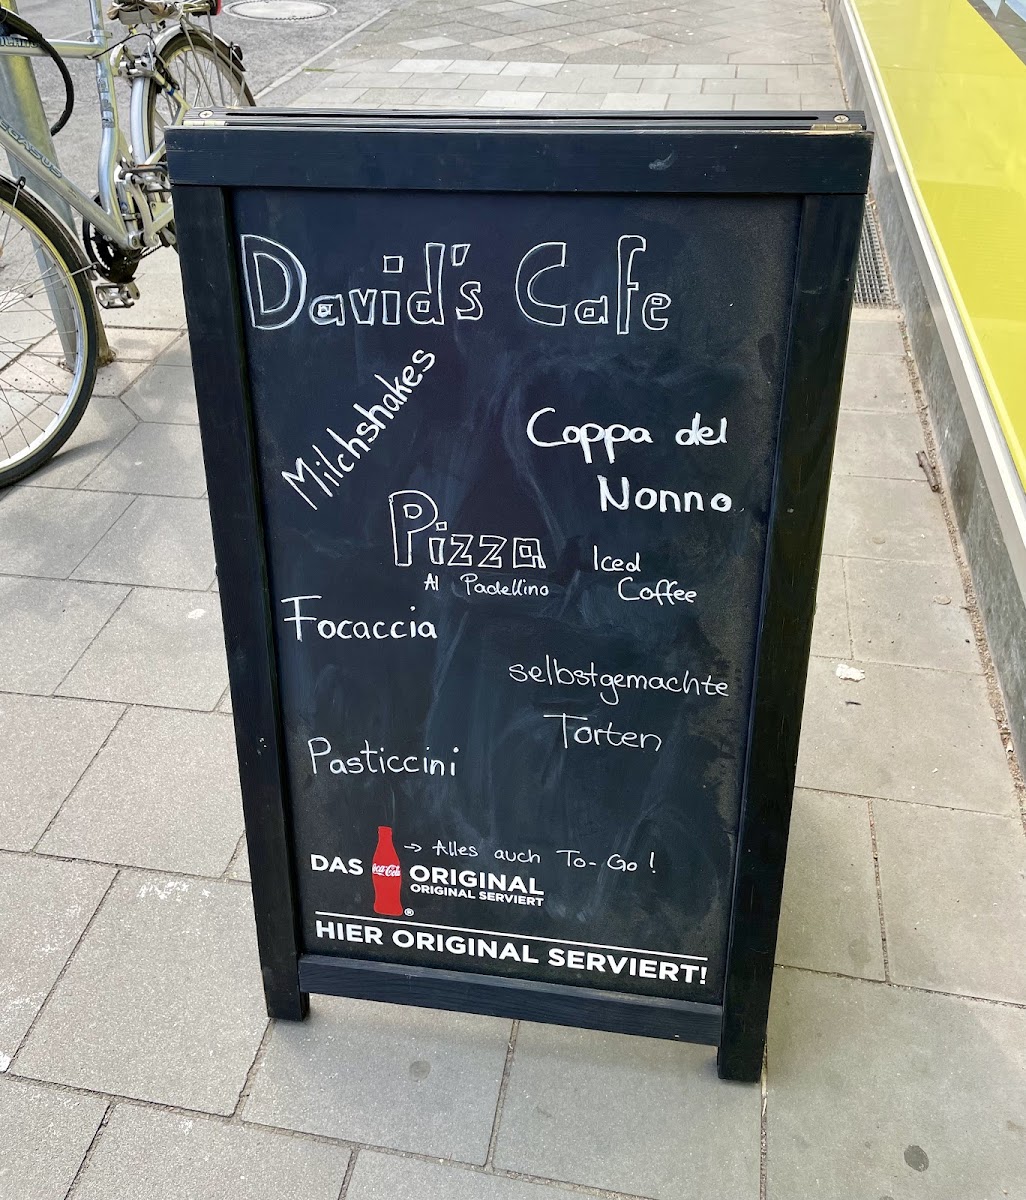 David's Cafe
Milchshakes
Coppa del
Nonno
Pizza
Al Padellino
Iced
Coffee
Focaccia
selbstgemachte
Torten
Pasticcini
→ Alles auch To-Go!
DAS Coca-Cola ORIGINAL
ORIGINAL SERVIERT
HIER ORIGINAL SERVIERT!
PEGASUS